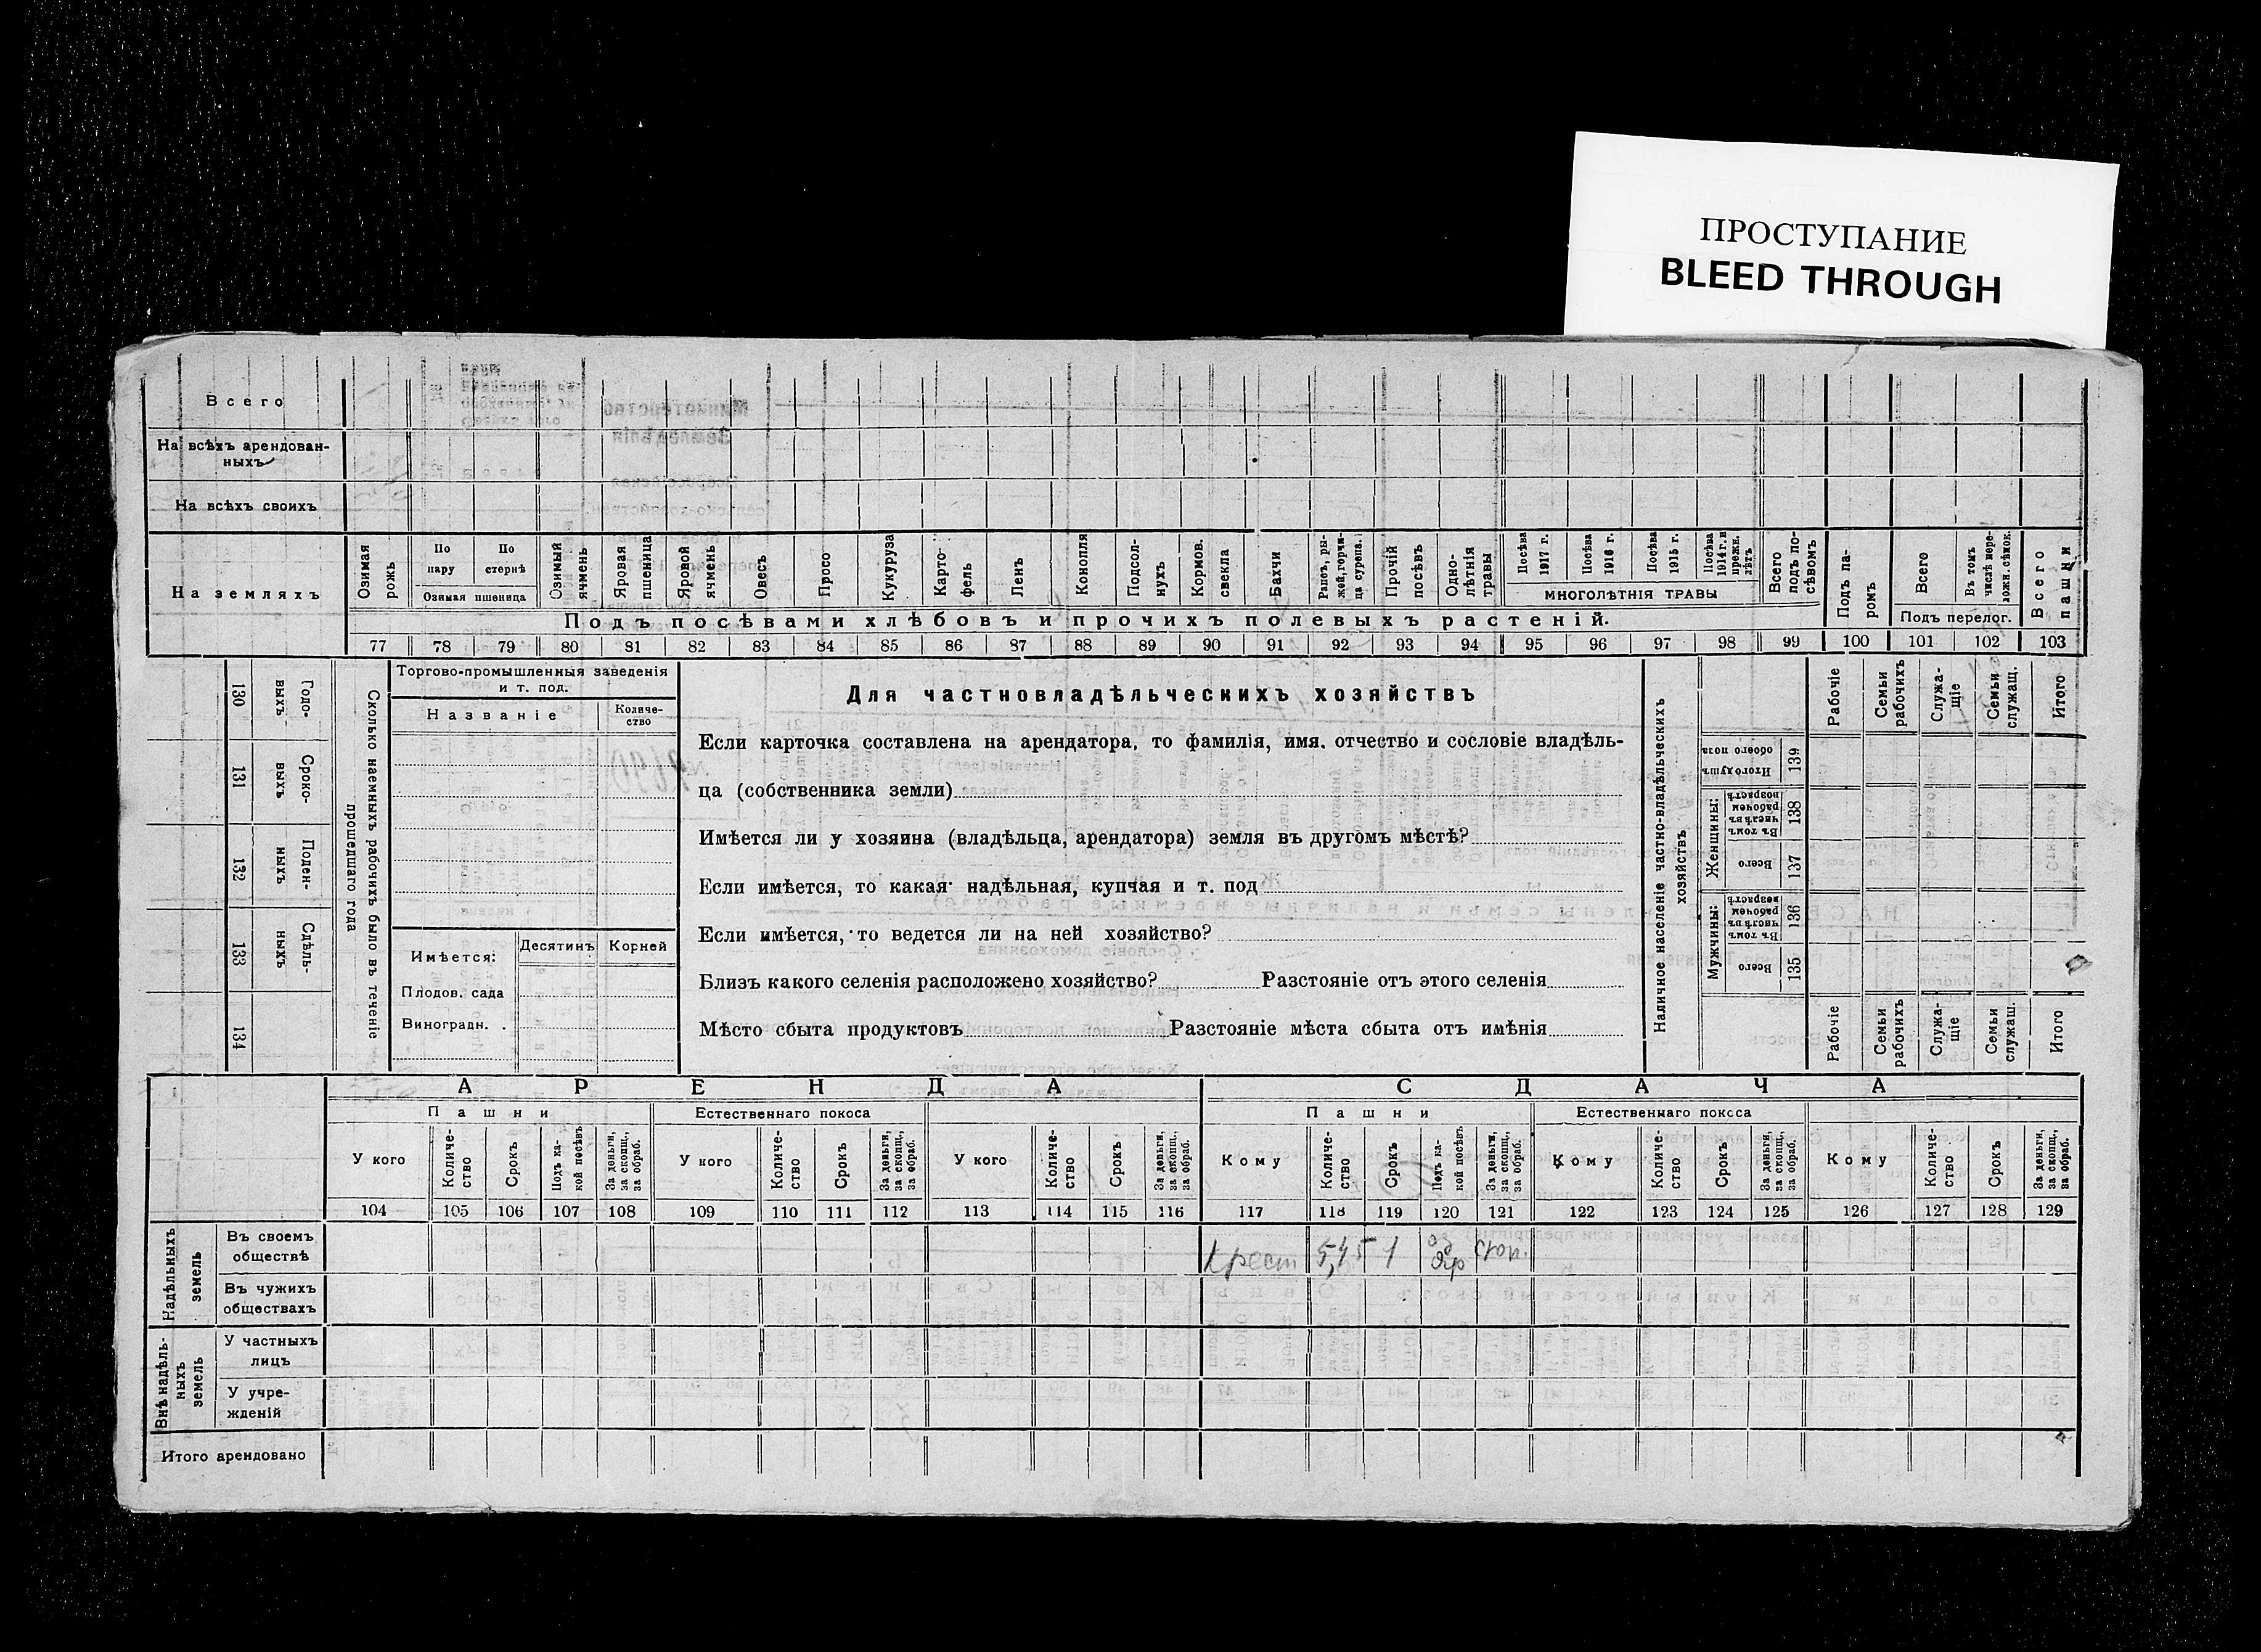 ПРОСТУПАНИЕ
BLEED THROUGH
Всего
На всѣхъ арендован-
ныхъ
На всѣхъ своихъ
На земляхъ
Озимая рожь
По пару
По стернѣ
Озимая пшеница
Озимый ячмень
Яровая пшеница
Яровой ячмень
Овесъ
Просо
Кукуруза
Карто-
фель
Ленъ
Конопля
Подсол-
нухъ
Кормов. свекла
Бахчи
Рапсъ, ры-
жей, горчи-
ца сурепа.
Прочій посѣвъ
Одно-
лѣтнія травы
Посѣва 1917 г.
Посѣва 1916 г.
Посѣва 1915 г.
Посѣва 1914 г. и прежн. лѣтъ
МНОГОЛѢТНІЯ ТРАВЫ
Всего подъ по-
сѣвомъ
Подъ па-
ромъ
Всего
Въ томъ числѣ пере-
ложн. сѣнок.
Подъ перелог.
Всего пашни
Подъ посѣвами хлѣбовъ и прочихъ полевыхъ растеній.
77 78 79 80 81 82 83 84 85 86 87 88 89 90 91 92 93 94 95 96 97 98 99 100 101 102 103
130 Годо-
выхъ
131 Сроко-
выхъ
132 Поден-
ныхъ
133 Сдѣль-
ныхъ
134
Сколько наемныхъ рабочихъ было въ теченіе
прошедшаго года
Торгово-промышленныя заведенія
и т. под.
Названіе
Количе-
ство
Имѣется:
Десятинъ
Корней
Плодов. сада
Виноградн. .
Для частновладѣльческихъ хозяйствъ
Если карточка составлена на арендатора, то фамилія, имя. отчество и сословіе владѣль-
ца (собственника земли)
Имѣется ли у хозяина (владѣльца, арендатора) земля въ другомъ мѣстѣ?
Если имѣется, то какая· надѣльная, купчая и т. под
Если имѣется, то ведется ли на ней хозяйство?
Близъ какого селенія расположено хозяйство? Разстояніе отъ этого селенія
Мѣсто сбыта продуктовъ Разстояніе мѣста сбыта отъ имѣнія
Наличное населеніе частно-владѣльческихъ
хозяйствъ
Рабочіе
Семьи рабочихъ
Служа-
щіе
Семьи служащ.
Итого
Итого душъ обоего пола
139
Женщины:
Въ томъ числѣ въ рабочемъ возрастѣ
138
Всего
137
Мужчины:
Въ томъ числѣ въ рабочемъ возрастѣ
136
Всего
135
Рабочіе
Семьи рабочихъ
Служа-
щіе
Семьи служащ.
Итого
АРЕНДА
СДАЧА
Пашни
Естественнаго покоса
Пашни
Естественнаго покоса
У кого
Количе-
ство
Срокъ
Подъ ка-
кой посѣвъ
За деньги, за скопщ., за обраб.
У кого
Количе-
ство
Срокъ
За деньги, за скопщ., за обраб.
У кого
Количе-
ство
Срокъ
За деньги, за скопщ., за обраб.
Кому
Количе-
ство
Срокъ
Подъ ка-
кой посѣвъ
За деньги, за скопщ., за обраб.
Кому
Количе-
ство
Срокъ
За деньги, за скопщ., за обраб.
Кому
Количе-
ство
Срокъ
За деньги, за скопщ., за обраб.
104 105 106 107 108 109 110 111 112 113 114 115 116 117 118 119 120 121 122 123 124 125 126 127 128 129
Надѣльныхъ земель
Въ своемъ
обществѣ
Крест 5,45 1
Въ чужихъ
обществахъ
Внѣ надѣль-
ныхъ земель
У частныхъ
лицъ
У учре-
жденій
Итого арендовано